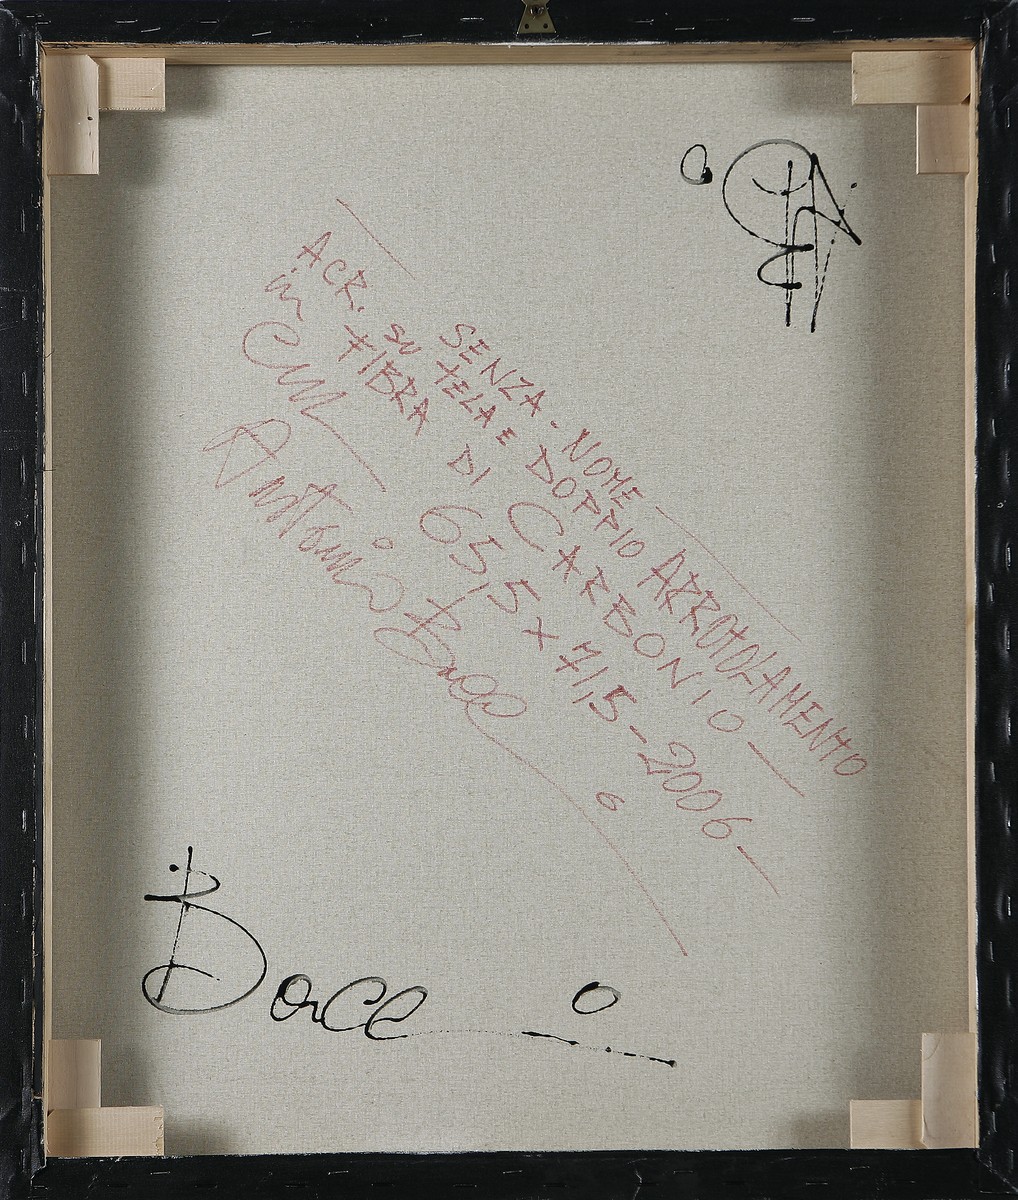 SENZA - NOME
ACR. SU TELA E DOPPIO ARROTOLAMENTO
in FIBRA DI CARBONIO
Cm 65,5 x 71,5 - 2006
Antonio Bacc
Bacc